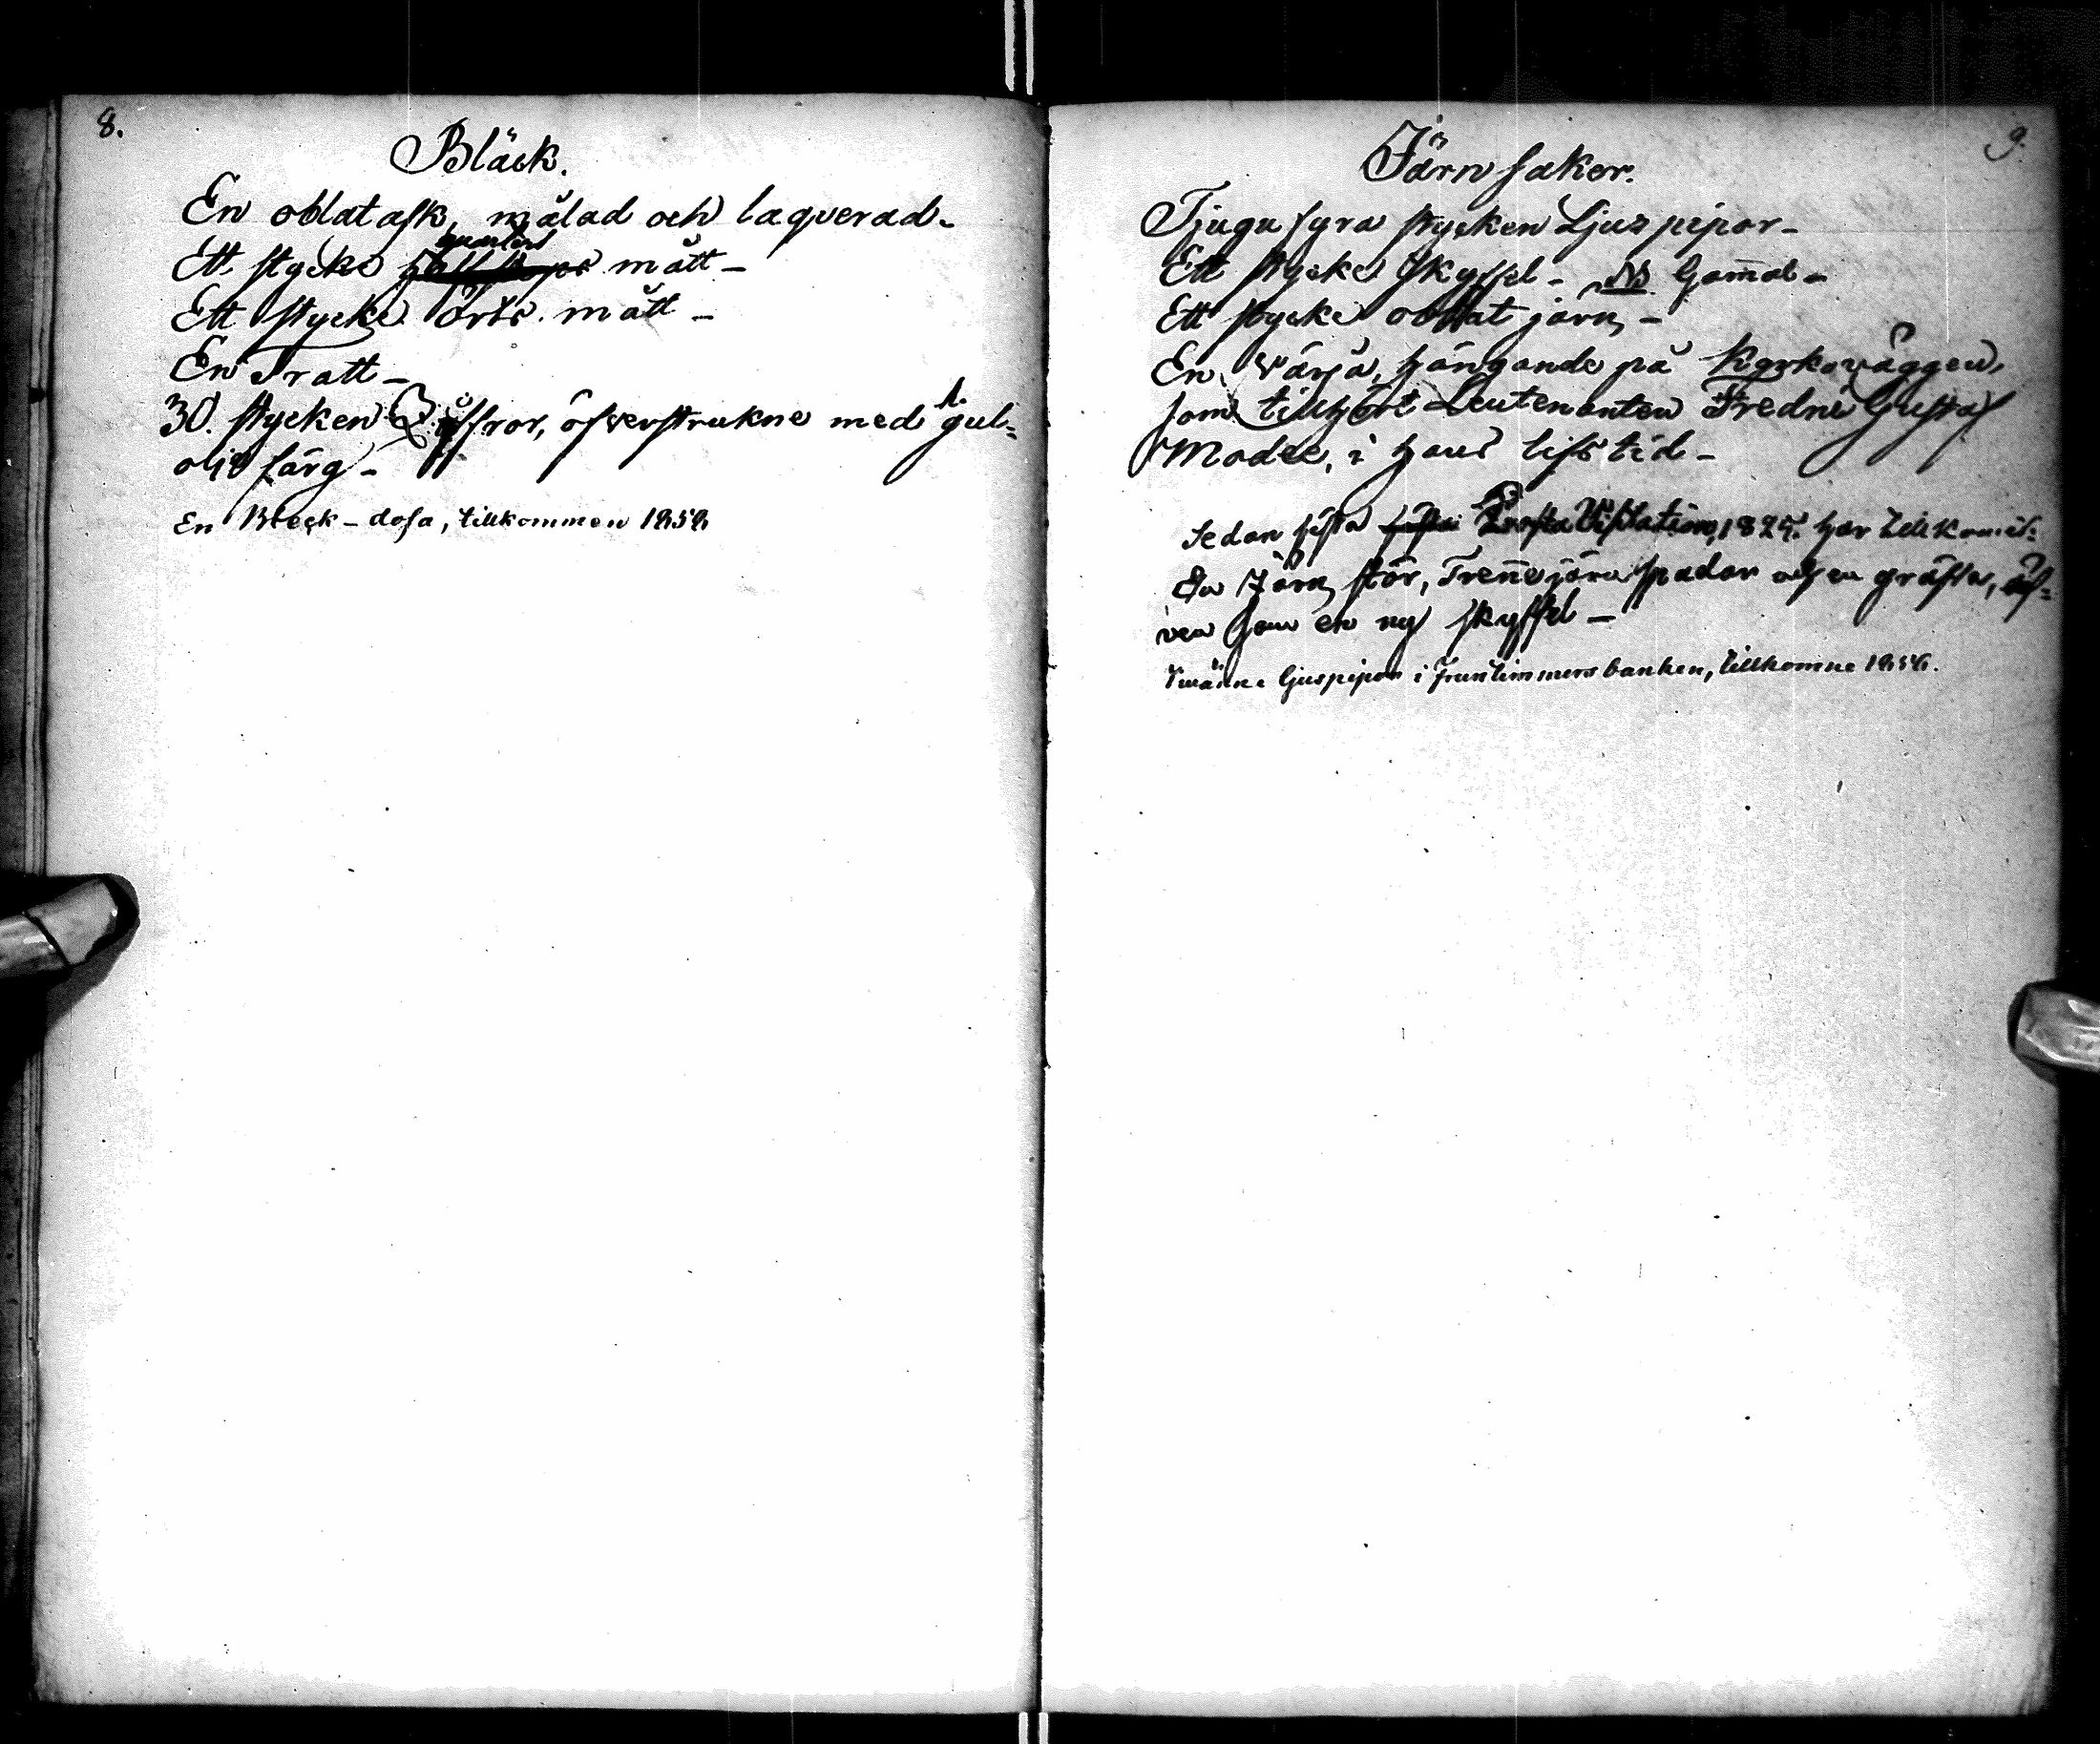 8.
Bläck.
En oblatask, målad och laqverad.
quarters
Ett stycke mått -
Ett stycke Orts. mått -
En Tratt -
30. stycken Ziffror, öfverstrukne med gul=
olje färg -
En Bleck-dosa, tillkommen 1858
9.
Järn saker.
Tjugu fyra stycken Ljus pipor -
Ett stycke Skyffel - NB Gam̄al -
Ett stycke oblat järn, -
En Värja, hängande på Kyrkoväggen,
som tillhört Leutenanten Fredric Gustaf
Modée, i hans lifstid -
Sedan sista Prosta Visitation, 1825. har tillkom̄it:
En Järn stör, Tren̄e järn spadar och en gräfta, äf=
ven som en ny skyffel -
Tvänne ljuspipor i Fruntimmersbanken, tillkomne 1856.